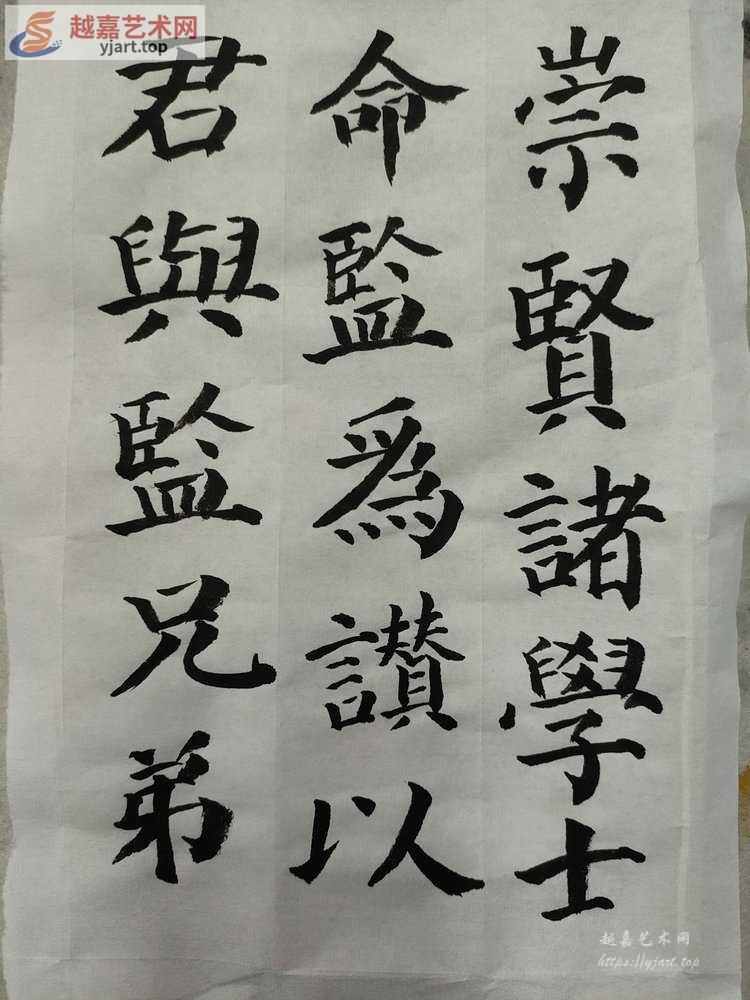 越嘉艺术网
yjart.top
崇賢諸學士
命監爲讃以
君與監兄弟
越嘉艺术网
https://yjart.top